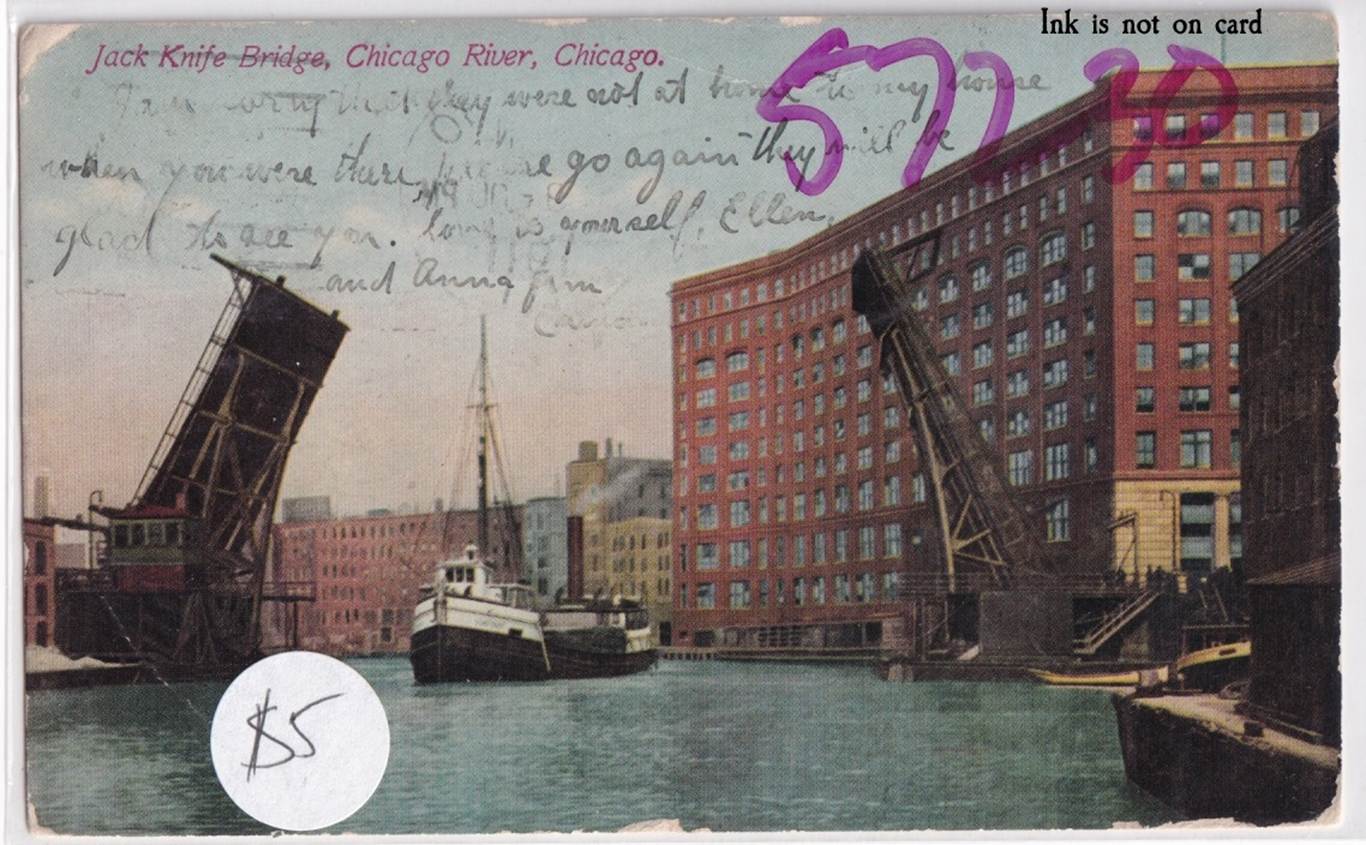 Ink is not on card
Jack Knife Bridge, Chicago River, Chicago.
577 30
that they were not at home to my house
when you were there, go again they will be
glad to see you. love to yourself, Ellen,
and Anna from
$5